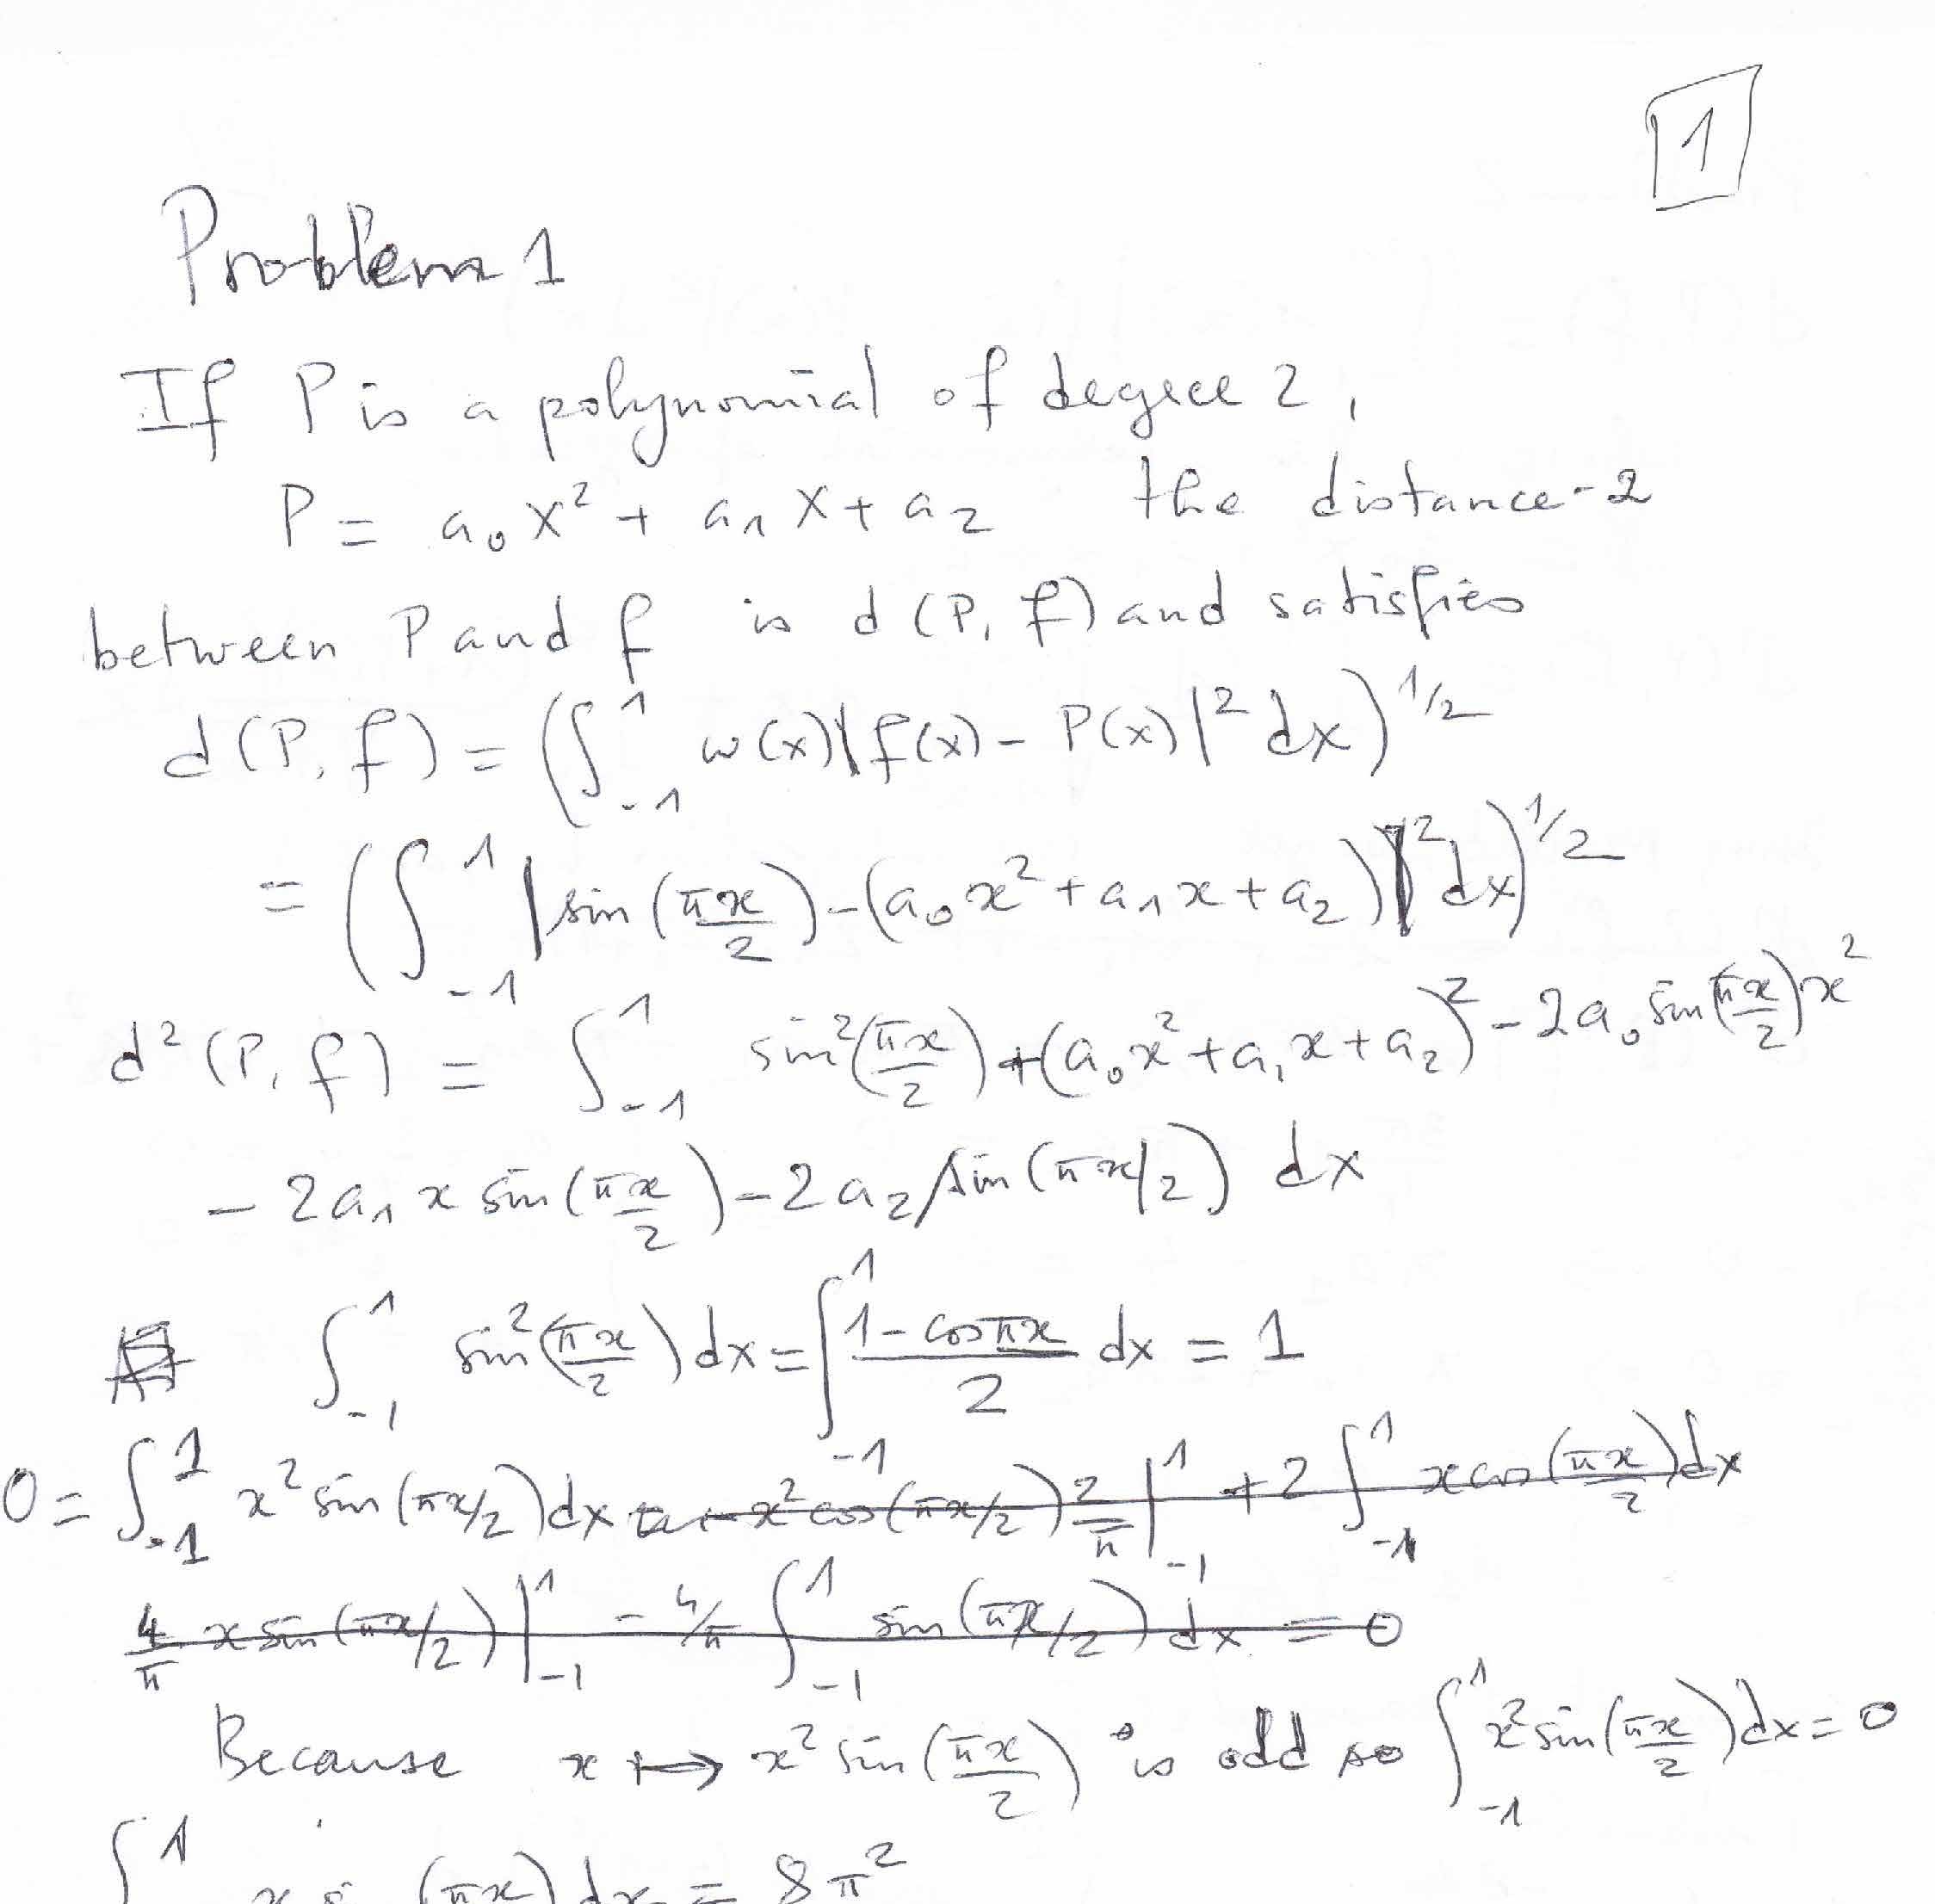 1
Problem 1
If P is a polynomial of degree 2,
P = a₀X² + a₁X + a₂ the distance-2
between P and f is d(P, f) and satisfies
d(P, f) = (∫_{-1}^{1} w(x)|f(x) - P(x)|² dx)^{1/2}
= (∫_{-1}^{1} |sin(πx/2) - (a₀x² + a₁x + a₂)|² dx)^{1/2}
d²(P, f) = ∫_{-1}^{1} sin²(πx/2) + (a₀x² + a₁x + a₂)² - 2a₀ sin(πx/2)x²
- 2a₁ x sin(πx/2) - 2a₂ sin(πx/2) dx
∫_{-1}^{1} sin²(πx/2) dx = ∫_{-1}^{1} (1 - cos πx)/2 dx = 1
0 = ∫_{-1}^{1} x² sin(πx/2) dx - x² cos(πx/2) 2/π |_{-1}^{1} + 2 ∫_{-1}^{1} x cos(πx/2) dx
4/π x sin(πx/2) |_{-1}^{1} - 4/π ∫_{-1}^{1} sin(πx/2) dx = 0
Because x ↦ x² sin(πx/2) is odd so ∫_{-1}^{1} x² sin(πx/2) dx = 0
∫^{1} x sin(πx dx = 8π²